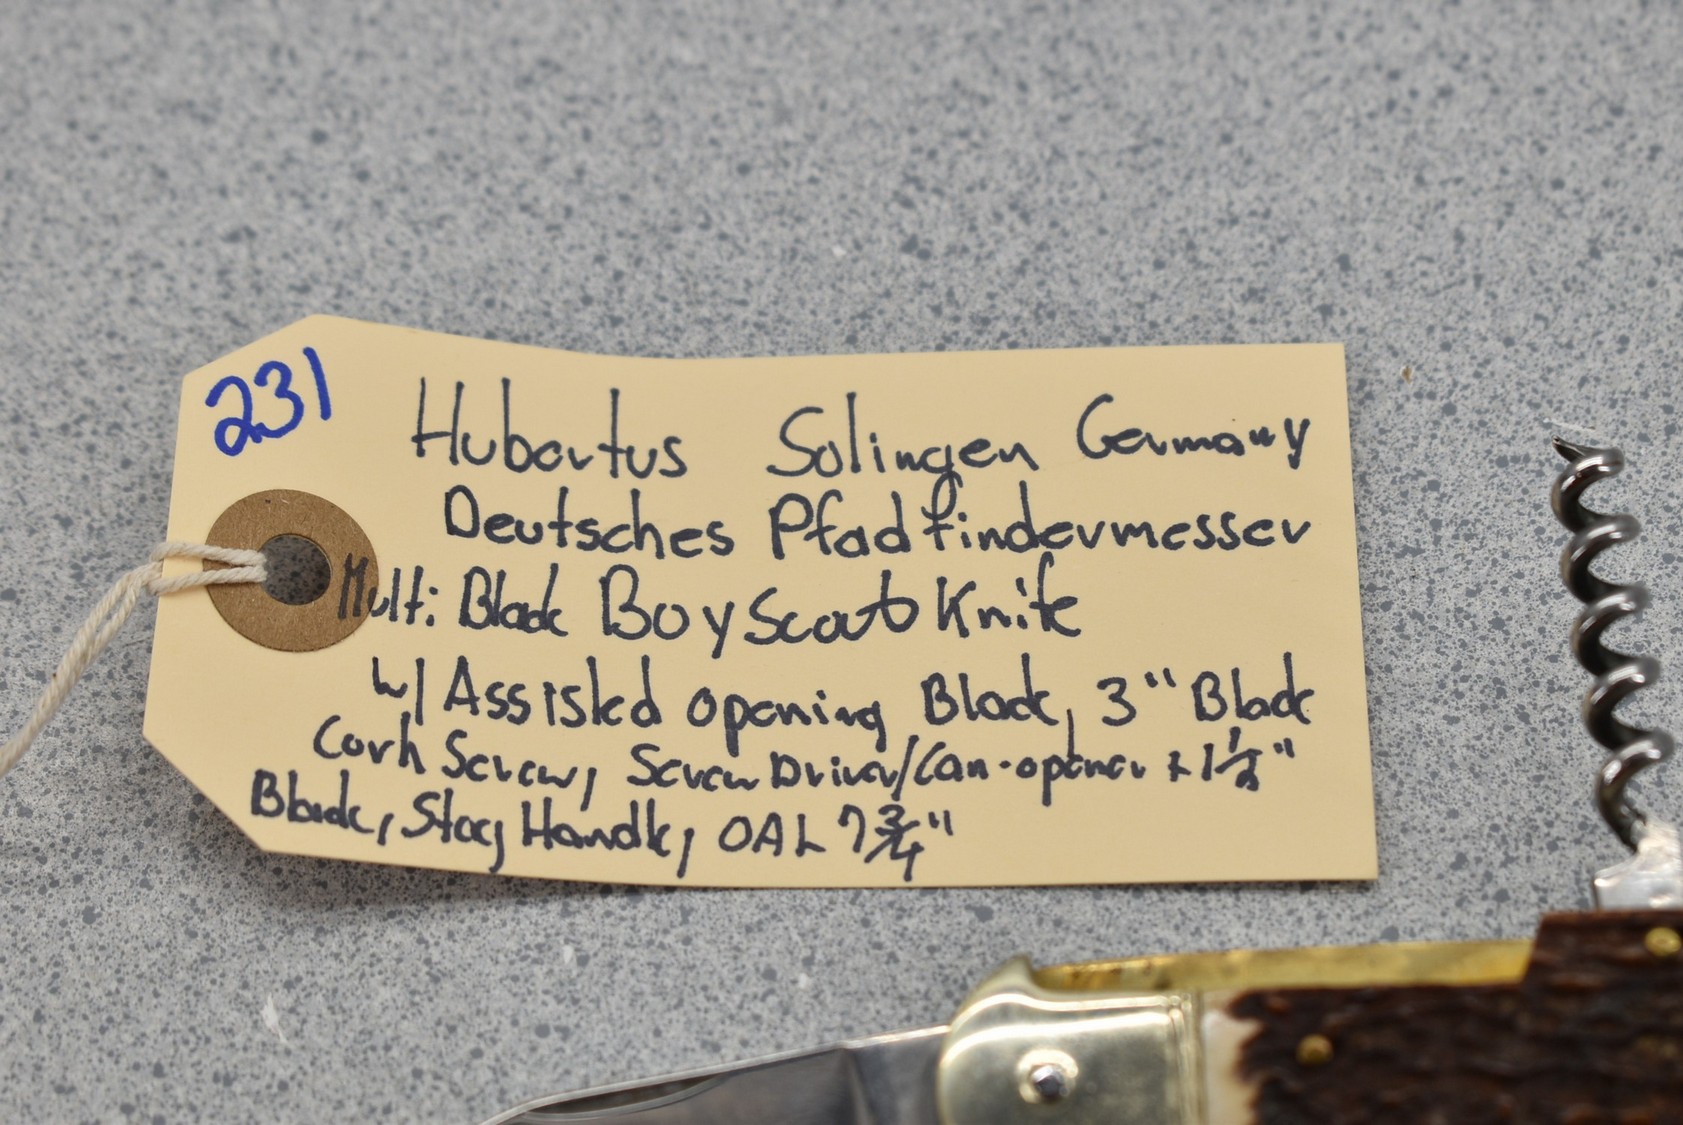 231
Hubertus Solingen Germany
Deutsches Pfadfindermesser
Multi Blade Boy Scout Knife
w/ Assisted opening Blade, 3" Blade
Cork Screw, Screw Driver/Can-opener + 1 1/2"
Blade, Stag Handle, OAL 7 3/4"